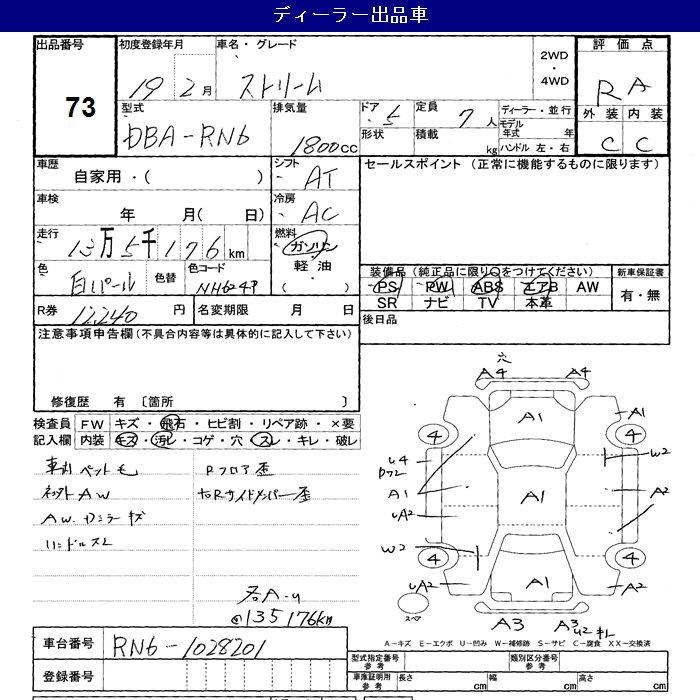 ディーラー出品車
出品番号
73
初度登録年月
19 2月
車名・グレード
ストリーム
2WD
・
4WD
評価点
R A
外装 内装
C C
型式
DBA-RN6
排気量
1800cc
ドア 5
形状
定員 7人
積載 kg
ディーラー・並行
モデル年式 年
ハンドル 左・右
車歴
自家用・( )
シフト
AT
セールスポイント (正常に機能するものに限ります)
車検
年 月( 日)
冷房
AC
走行
13万5千176km
燃料
ガソリン
軽油・
( )
色
白パール
色替
色コード
NH624P
装備品 (純正品に限り○をつけてください)
PS PW ABS エアB AW
SR ナビ TV 本革
新車保証書
有・無
R券 12,240円
名変期限 月 日
後日品
注意事項申告欄(不具合内容等は具体的に記入して下さい)
修復歴 有 〔箇所 〕
検査員 FW キズ・飛石・ヒビ割・リペア跡・×要
記入欄 内装 キズ・汚れ・コゲ・穴・スレ・キレ・破レ
車内ペット毛
Rフロア歪
AW
AW. キズ
ハンドルスレ
135176km
穴
A4 A4
A1
A1
4 4
U4
W2
A1
A1
A2
UA2
W2
4 4
UA2
A1
A2
スペア
A3 A3 U2
A−キズ E−エクボ U−凹み W−補修跡 S−サビ C−腐食 XX−交換済
車台番号 RN6-1028201
登録番号
型式指定番号
参考
類別区分番号
参考
車庫証明用
参考
長さ cm 幅 cm 高さ cm